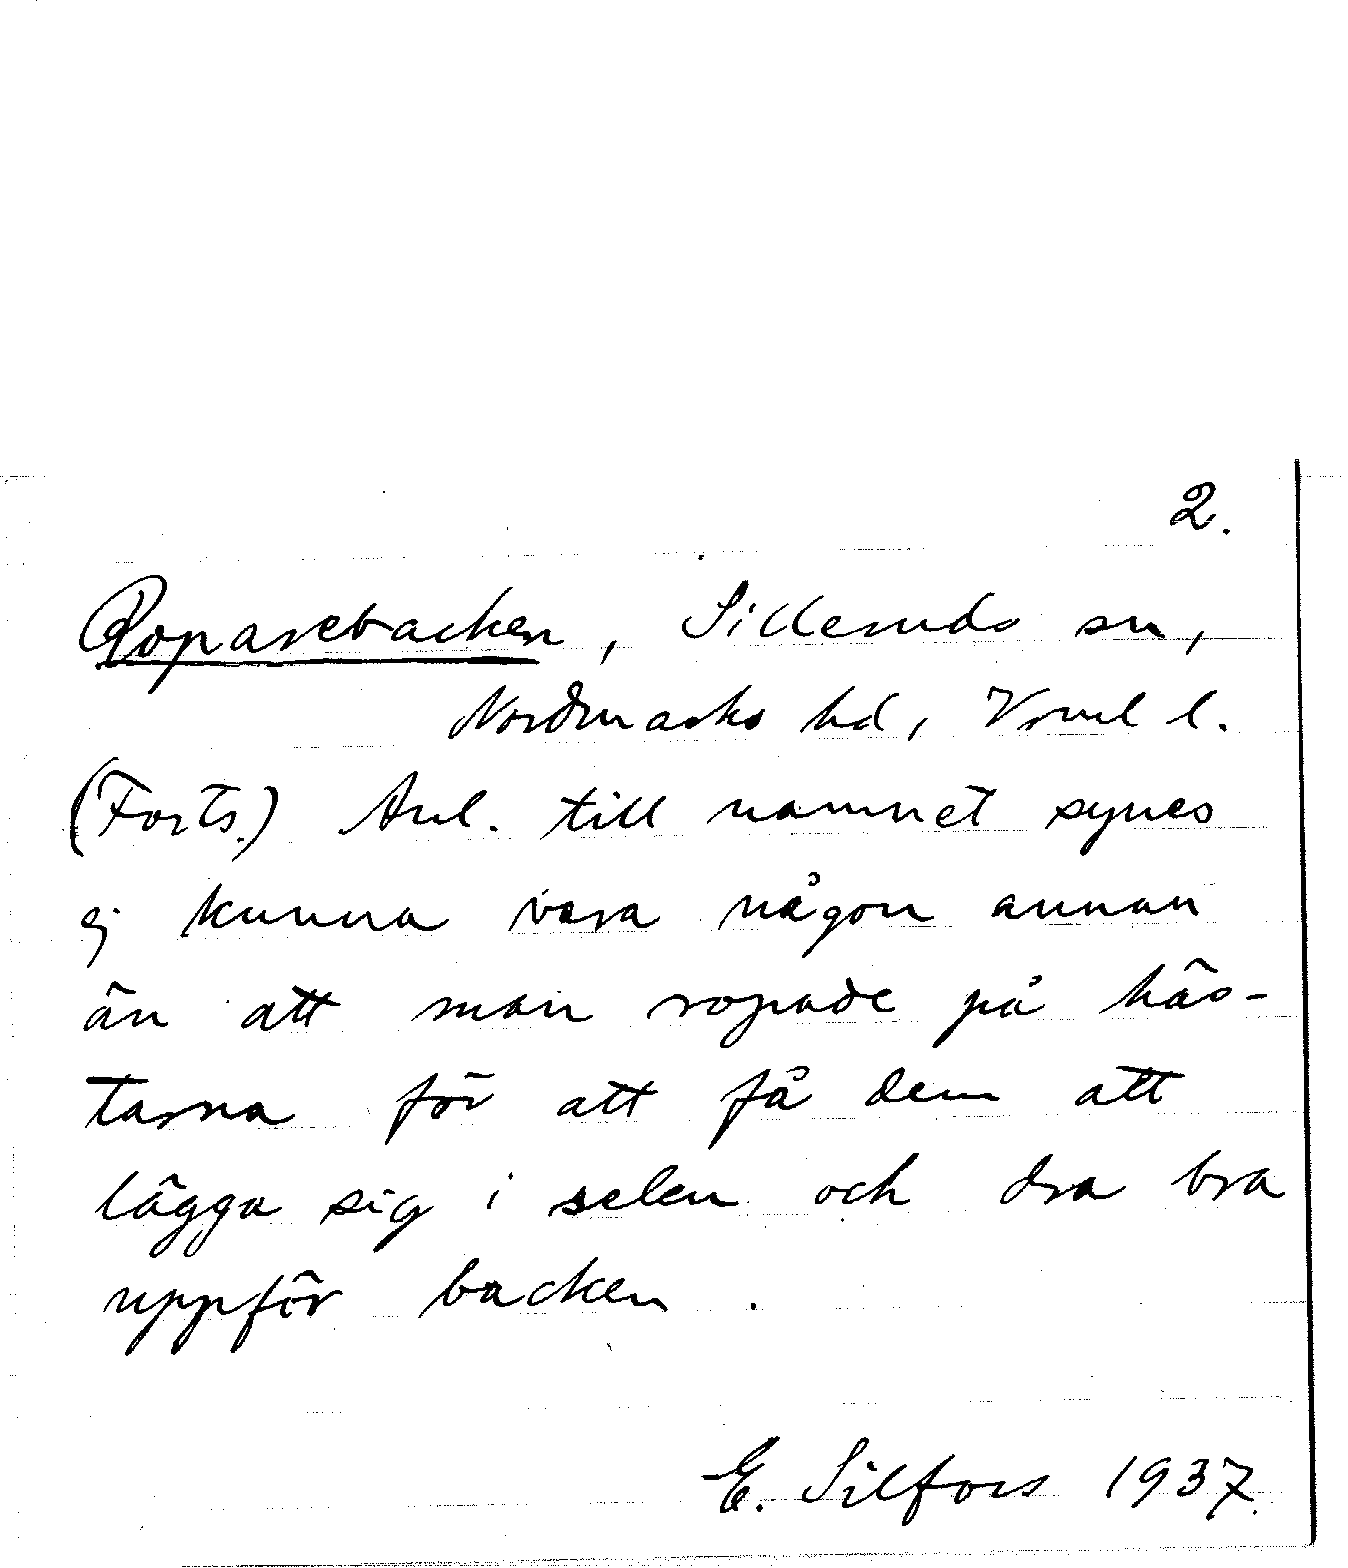 2.
Roparebacken, Silleruds sn,
Nordmarks hd, Vrml l.
(Forts.) Anl. till namnet synes
ej kunna vara någon annan
än att man ropade på häs-
tarna för att få dem att
lägga sig i selen och dra bra
uppför backen.
E. Silfors 1937.